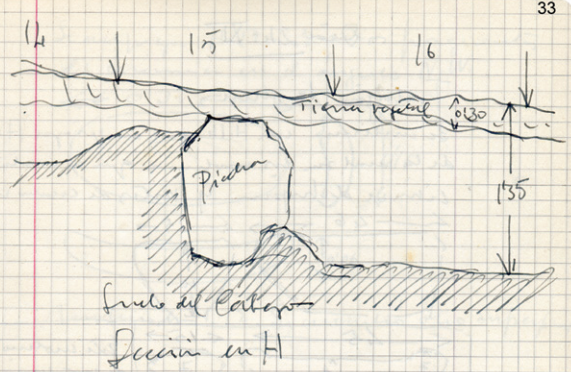 33
14 15 16
Tierra vegetal 0'30
Piedra
1'35
Suelo del Cabezo
Sección en H